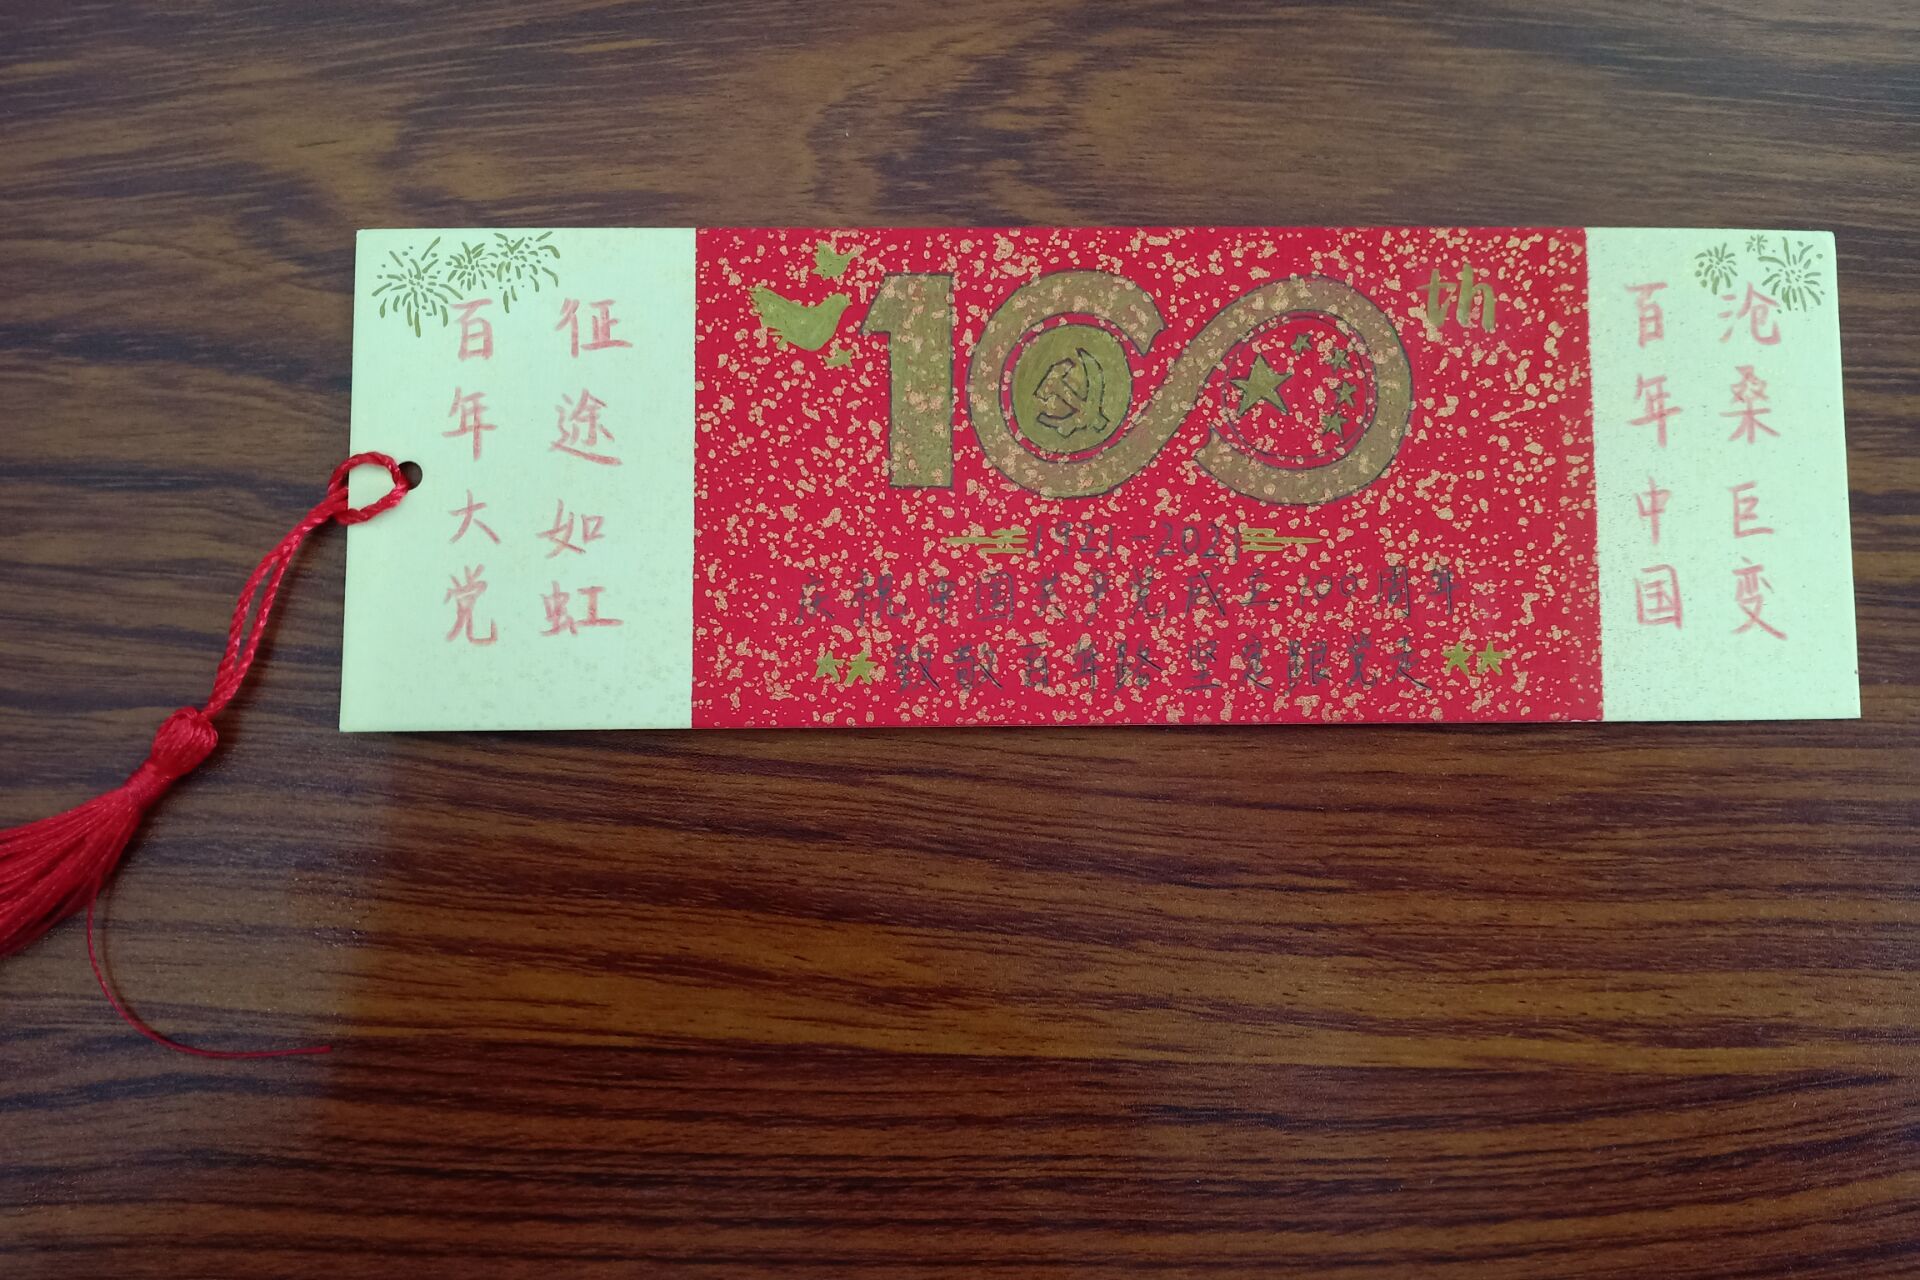 百年大党
征途如虹
100th
1921-2021
庆祝中国共产党成立100周年
致敬百年路 坚定跟党走
百年中国
沧桑巨变